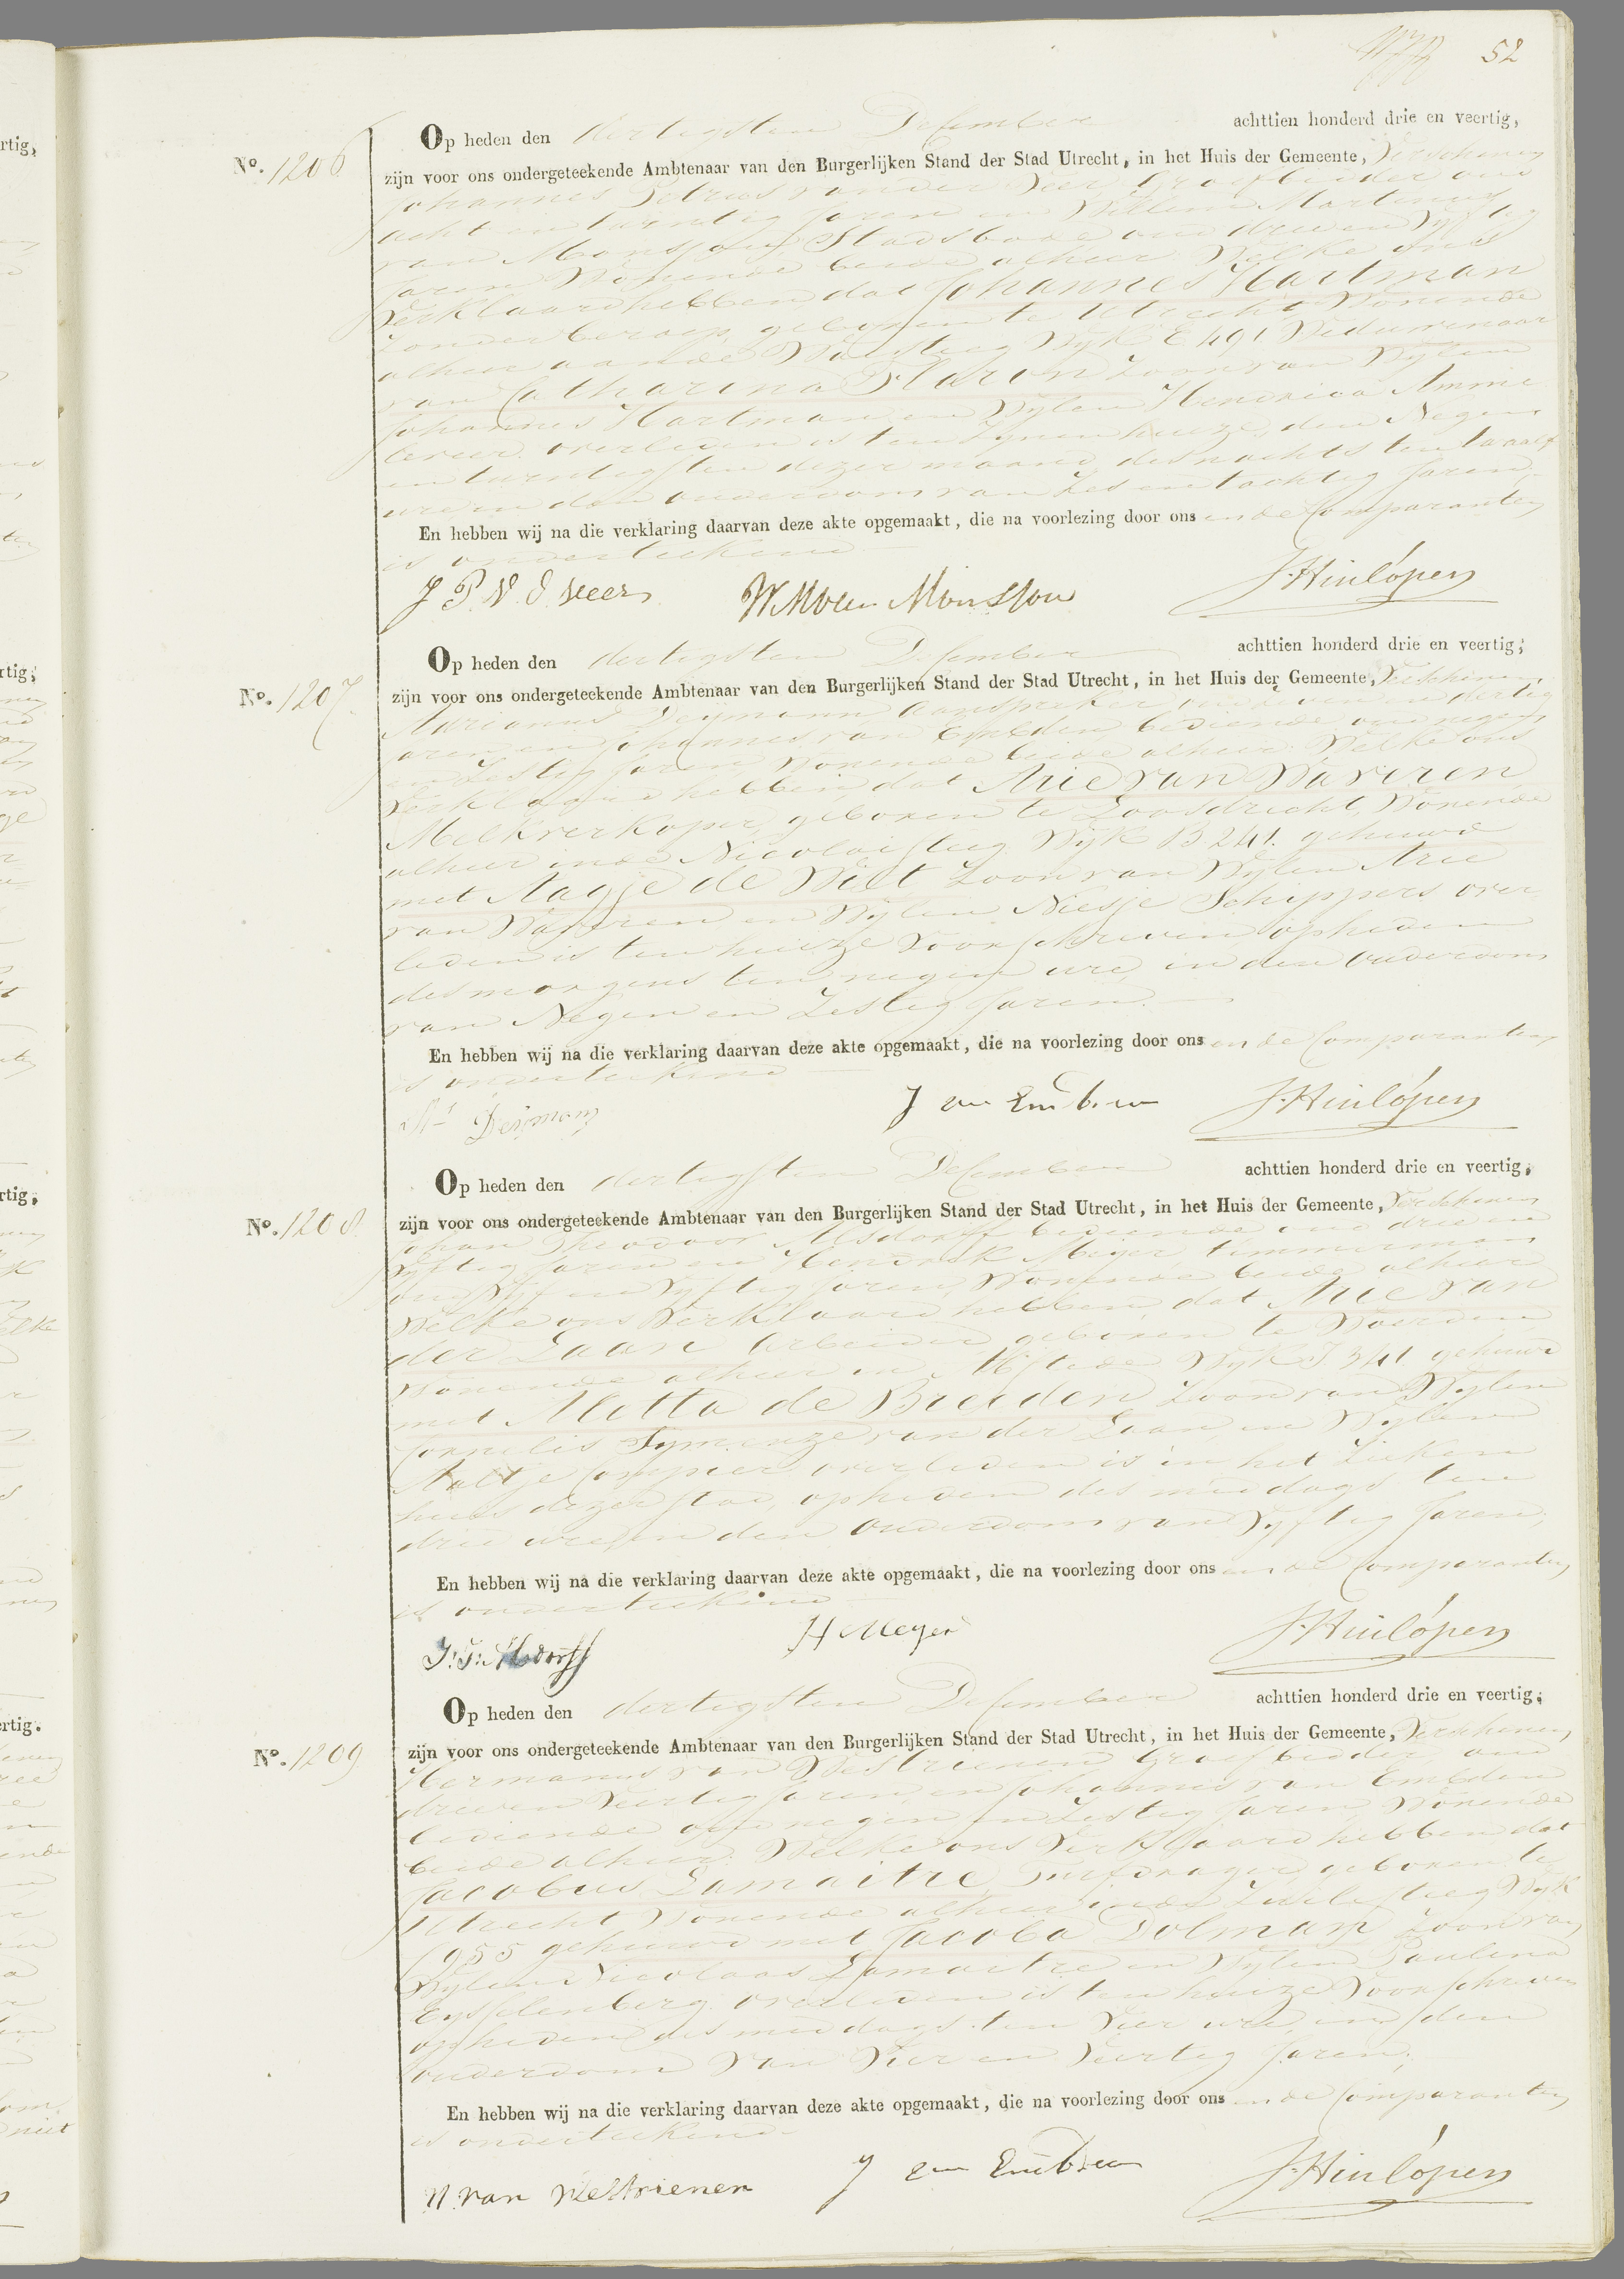 52
Op heden den dertigsten December achttien honderd drie en veertig,
No. 1206 zijn voor ons ondergeteekende Ambtenaar van den Burgerlijken Stand der Stad Utrecht, in het Huis der Gemeente, Verschenen
Johannes Petrus van der Veer Groefbidder oud
acht en twintig Jaren en Willem Martinus
van Monsjou Stadsbode oud drie en Vyftig
Jaren Wonende beide alhier Welke ons
Verklaard hebben dat Johannes Hartman
Zonder beroep, geboren te Utrecht Wonende
alhier aan de Wyk E 491 Weduwenaar
van Catharina Zoon van Wylen
Johannes Hartman en Wylen Hendrica Annie
overleden is ten Zynen huize, den Negen
en twintigsten dezer maand, des nachts ten twaalf
ure in den ouderdom van Zes en tachtig Jaren,
En hebben wij na die verklaring daarvan deze akte opgemaakt, die na voorlezing door ons en de Comparanten
is onderteekend
J P V D Veer W M van Monsjou J. Hinlópen
Op heden den dertigsten December achttien honderd drie en veertig,
No. 1207 zijn voor ons ondergeteekende Ambtenaar van den Burgerlijken Stand der Stad Utrecht, in het Huis der Gemeente, Verschenen
Adrianus Deymann aanspreker oud en dertig
Jaren en Johannes van Embden bediende oud negen
en Zestig Jaren Wonende beide alhier Welke ons
Verklaard hebben dat Arie van Waveren
Melkverkoper, geboren te Loosdrecht, Wonende
alhier in de Nicolaisteeg Wyk B 241. gehuwd
met Aagje de Wilt Zoon van Wylen Arie
van Waveren en Wylen Niesje Schippers over
leden is ten huize Voorschreven op heden
des morgens ten negen ure, in den ouderdom
van Negen en Zestig Jaren.
En hebben wij na die verklaring daarvan deze akte opgemaakt, die na voorlezing door ons en de Comparanten
is onderteekend
Deijmann J van Embden J. Hinlópen
Op heden den dertigsten December achttien honderd drie en veertig,
No. 1208 zijn voor ons ondergeteekende Ambtenaar van den Burgerlijken Stand der Stad Utrecht, in het Huis der Gemeente, Verschenen
Johan Theodoor Alsdorff bediende oud drie en
Vyftig Jaren en Hendrik Meyer, timmerman
oud Vyf en Vyftig Jaren, Wonende beide alhier
Welke ons Verklaard hebben dat Arie van
der Laan Arbeider geboren te Woerden
Wonende alhier in Wyk I 341 gehuwd
met Aletta de Breeden Zoon van Wylen
Cornelis van der Laan en Wylen
Aaltje Compeer overleden is in het Zieken
huis dezer stad, op heden des middags ten
drie ure, in den Ouderdom van Vyftig Jaren,
En hebben wij na die verklaring daarvan deze akte opgemaakt, die na voorlezing door ons en de Comparanten
is onderteekend
J: T: Alsdorff H Meyer J. Hinlópen
Op heden den dertigsten December achttien honderd drie en veertig,
No. 1209 zijn voor ons ondergeteekende Ambtenaar van den Burgerlijken Stand der Stad Utrecht, in het Huis der Gemeente, Verschenen
Hermanus van Westrienen Groefbidder oud
drie en Veertig Jaren, en Johannes van Embden
bediende oud negen en Zestig Jaren, Wonende
beide alhier Welke ons Verklaard hebben dat
Jacobus Lamaitre, Turfdrager, geboren te
Utrecht Wonende alhier in de Wyk
955 gehuwd met Jacoba Dolman Zoon van
Wylen Nicolaas Lamaitre en Wylen Paulina
Eysselenberg overleden is ten huize Voorschreven
op heden des middags ten Vier ure, in den
ouderdom van Vier en Veertig Jaren,
En hebben wij na die verklaring daarvan deze akte opgemaakt, die na voorlezing door ons en de Comparanten
is onderteekend
H. van Westrienen J van Embden J. Hinlópen